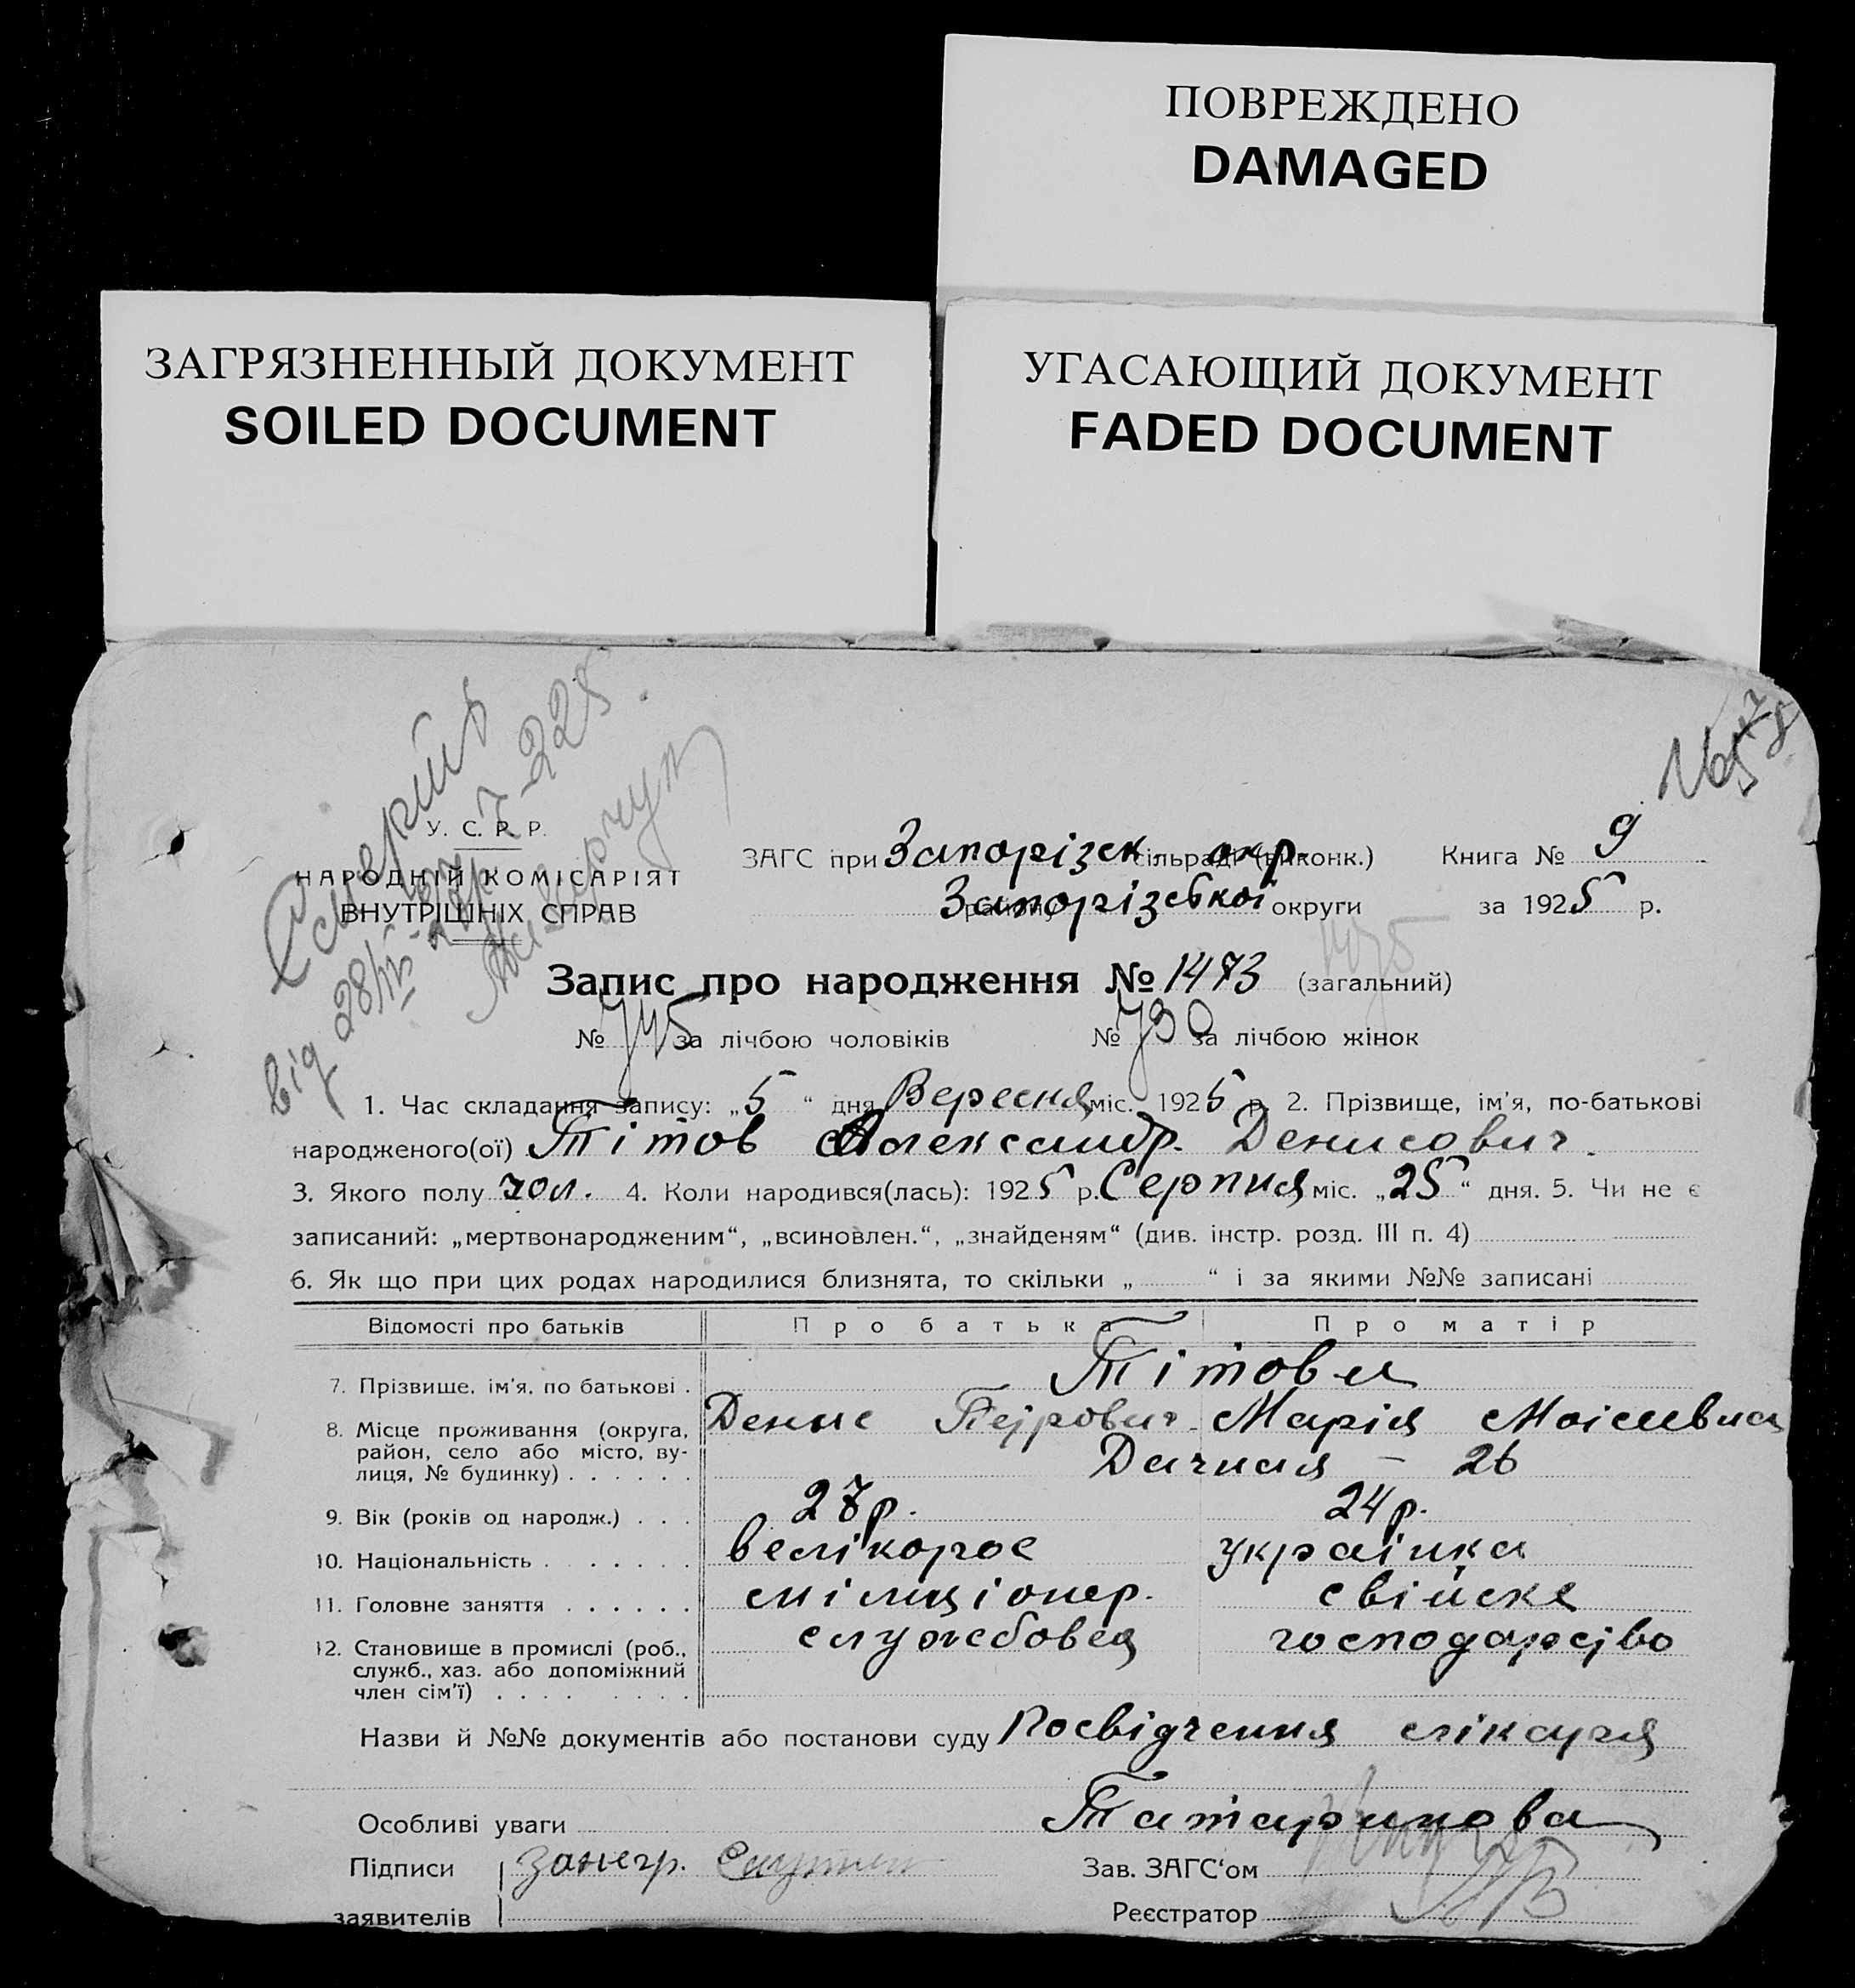 ПОВРЕЖДЕНО
DAMAGED
ЗАГРЯЗНЕННЫЙ ДОКУМЕНТ
SOILED DOCUMENT
УГАСАЮЩИЙ ДОКУМЕНТ
FADED DOCUMENT
від 28/IV
У. С. Р. Р.
НАРОДНІЙ КОМІСАРІЯТ
ВНУТРІШНІХ СПРАВ
ЗАГС при Запорізськ. сільраді окр. (виконк.) Книга № 9
району Запорізської округи за 1925 р.
Запис про народження № 1473 (загальний)
1475
№ 745 за лічбою чоловіків № 730 за лічбою жінок
1. Час складання запису: „5“ дня Вересня міс. 1925 р. 2. Прізвище, ім'я, по-батькові
народженого(ої) Тітов Александр. Денисович.
3. Якого полу чол. 4. Коли народився(лась): 1925 р. Серпня міс. „25“ дня. 5. Чи не є
записаний: „мертвонародженим“, „всиновлен.“, „знайденям“ (див. інстр. розд. III п. 4)
6. Як що при цих родах народилися близнята, то скільки „ “ і за якими №№ записані
Відомості про батьків Про батька Про матір
7. Прізвише, ім'я, по батькові . Тітови
Денис Петрович Марія Моісивна
8. Місце проживання (округа,
район, село або місто, ву-
лиця, № будинку) . . . . . . Дачная – 26
9. Вік (років од народж.) . . . 27 р. 24 р.
10. Національність . . . . . . велікорос українка
11. Головне заняття . . . . . . міліціонер. свійске
12. Становище в промислі (роб., службовец господарство
служб., хаз. або допоміжний
член сім'ї) . . . . . . . .
Назви й №№ документів або постанови суду Посвідчення лікаря
Татаринова
Особливі уваги
Підписи
заявителів
Зав. ЗАГС'ом
Реєстратор